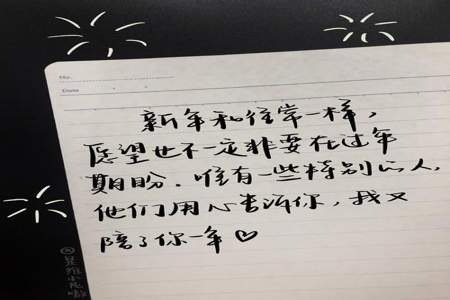 No.
Date
新年和往常一样，
愿望也不一定非要在过年
期盼．唯有一些特别的人，
他们用心告诉你，我又
陪了你一年♡